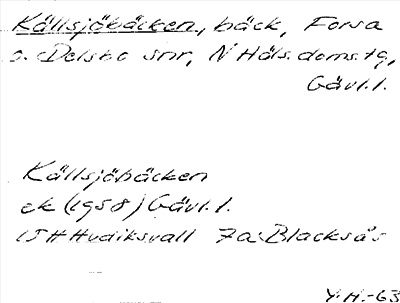 Källsjöbäcken, bäck, Forsa
o. Delsbo snr, N Häls. doms.tg,
Gävl.l.
Källsjöbäcken
ek (1958) Gävl.l.
15H Hudiksvall 7a: Blacksås
Y.H.-63